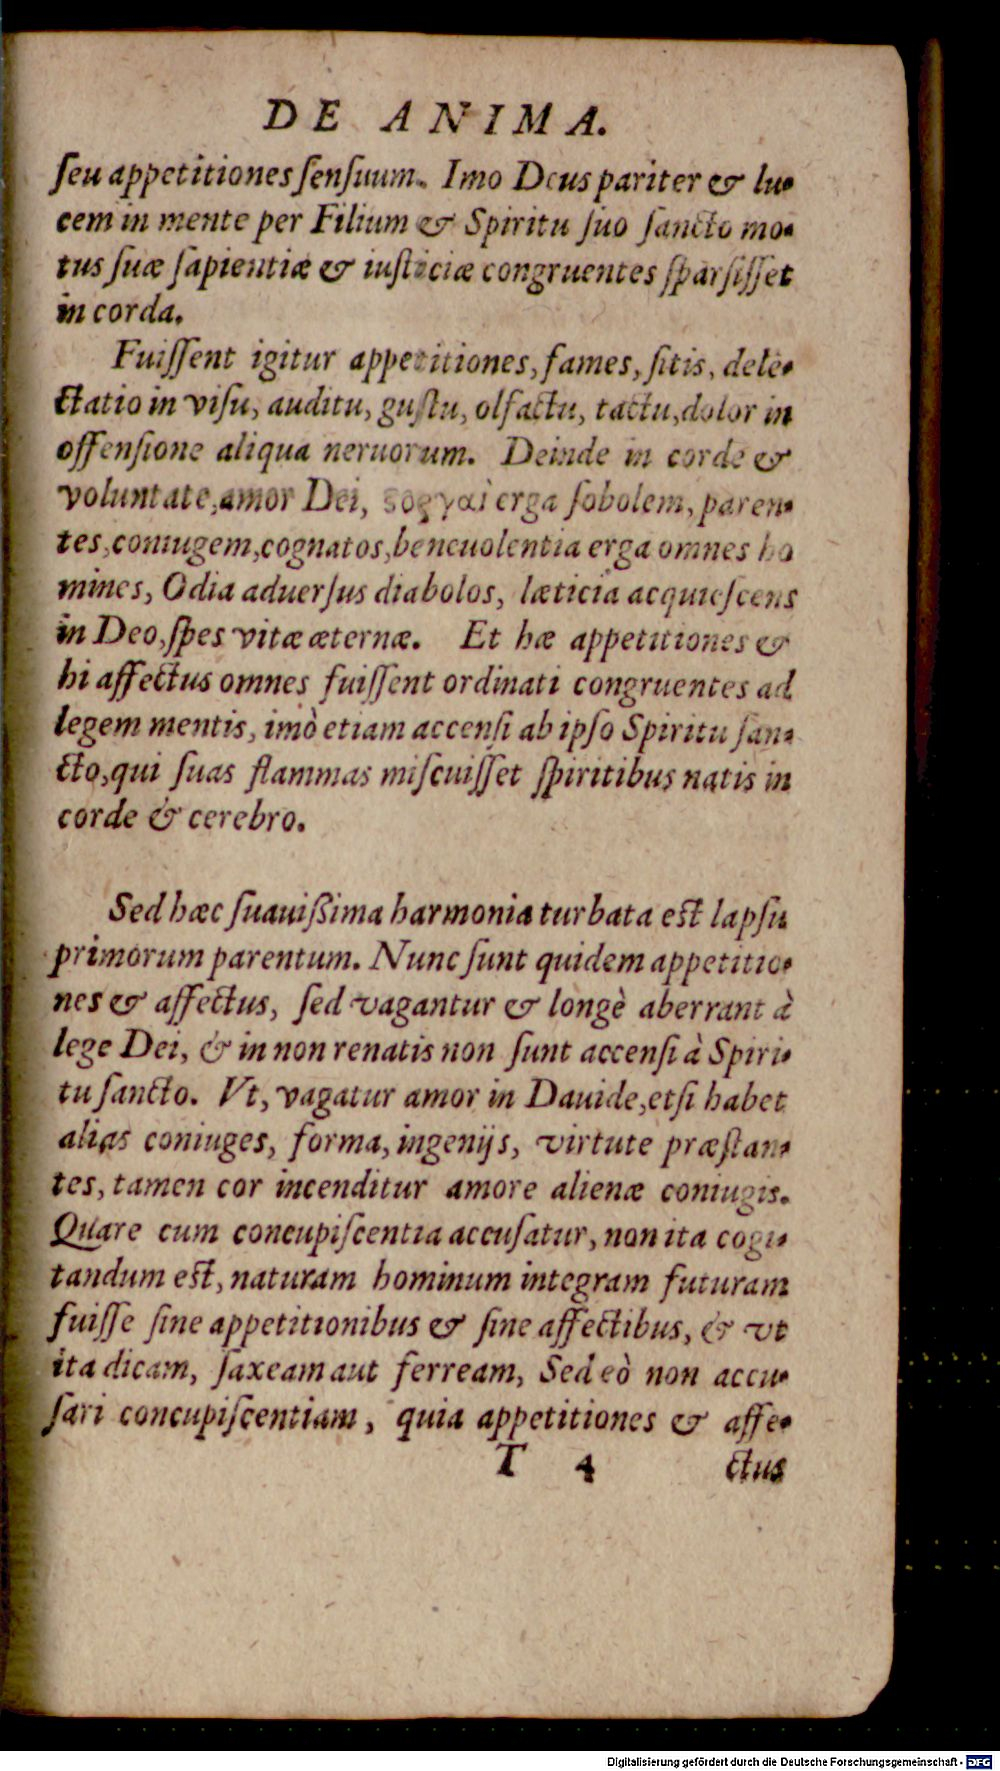 DE ANIMA.
ſeu appetitiones ſenſuum. Imo Deus pariter & lu-
cem in mente per Filium & Spiritu ſuo ſancto mo-
tus ſuæ ſapientiæ & iuſticiæ congruentes ſparſiſſet
in corda.
Fuiſſent igitur appetitiones, fames, ſitis, dele-
ctatio in viſu, auditu, guſtu, olfactu, tactu, dolor in
offenſione aliqua neruorum. Deinde in corde &
voluntate, amor Dei, ςοργαὶ erga ſobolem, paren-
tes, coniugem, cognatos, beneuolentia erga omnes ho
mines, Odia aduerſus diabolos, læticia acquieſcens
in Deo, ſpes vitæ æternæ. Et hæ appetitiones &
hi affectus omnes fuiſſent ordinati congruentes ad
legem mentis, imò etiam accenſi ab ipſo Spiritu ſan-
cto, qui ſuas flammas miſcuiſſet ſpiritibus natis in
corde & cerebro.
Sed hæc ſuauißima harmonia turbata eſt lapſu
primorum parentum. Nunc ſunt quidem appetitio-
nes & affectus, ſed vagantur & longè aberrant à
lege Dei, & in non renatis non ſunt accenſi à Spiri-
tu ſancto. Vt, vagatur amor in Dauide, etſi habet
alias coniuges, forma, ingenijs, virtute præſtan-
tes, tamen cor incenditur amore alienæ coniugis.
Quare cum concupiſcentia accuſatur, non ita cogi-
tandum eſt, naturam hominum integram futuram
fuiſſe ſine appetitionibus & ſine affectibus, & vt
ita dicam, ſaxeam aut ferream, Sed eò non accu-
ſari concupiſcentiam, quia appetitiones & affe-
T 4 ctus
Digitalisierung gefördert durch die Deutsche Forschungsgemeinschaft - DFG